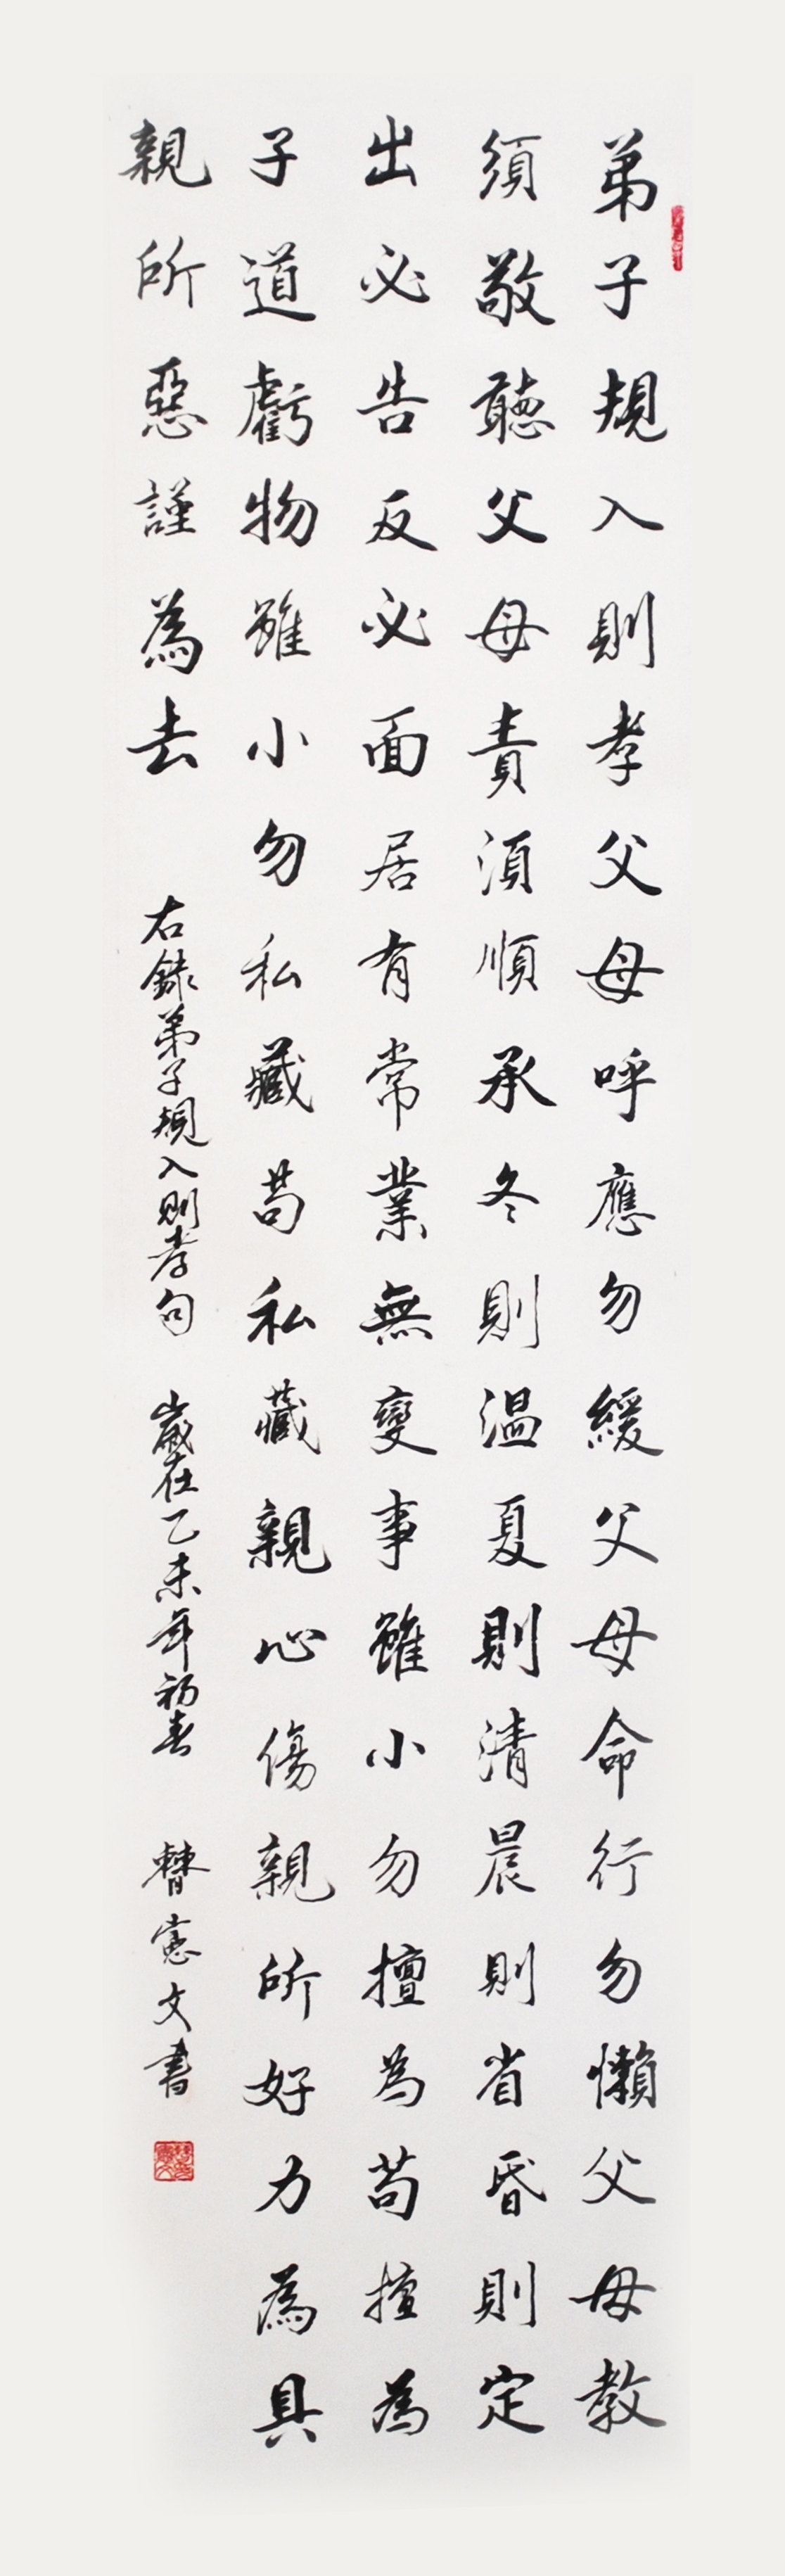 弟子規入則孝父母呼應勿緩父母命行勿懶父母教
須敬聽父母責湏順承冬則温夏則清晨則省昏則定
出必告反必面居有常業無變事雖小勿擅為苟擅為
子道虧物雖小勿私藏苟私藏親心傷親所好力為具
親所惡謹為去 右録弟子規入則孝句 歲在乙未年初春 憲文書